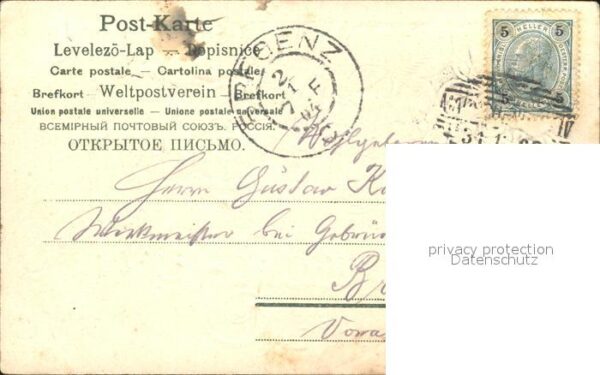 Post-Karte
Levelezö-Lap — Dopisnice
Carte postale — Cartolina postale
Brefkort — Weltpostverein — Brefkort
Union postale universelle — Unione postale universale
ВСЕМІРНЫЙ ПОЧТОВЫЙ СОЮЗЪ. РОССІЯ.
ОТКРЫТОЕ ПИСЬМО.
BREGENZ
5 HELLER 5
Wohlgeboren
Herrn Gustav
Werkmeister bei Gebrü
Br
Vora
privacy protection
Datenschutz